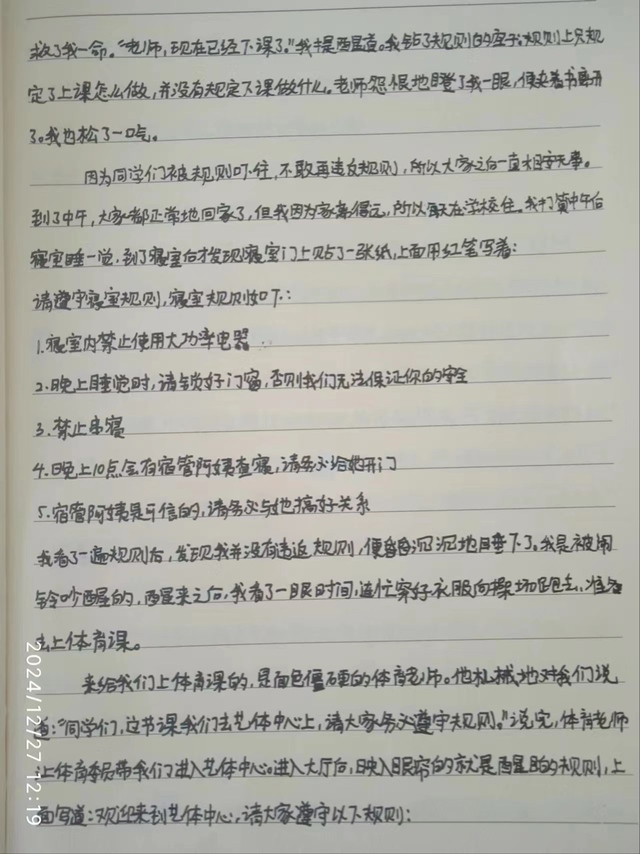 救了我一命。“老师,现在已经下课了。”我提醒道。我钻了规则的空子。规则上只规
定了上课怎么做,并没有规定下课做什么。老师怨恨地瞪了我一眼,便夹着书离开
了。我也松了一口气。
因为同学们被规则吓住,不敢再违反规则,所以大家之后一直相安无事。
到了中午,大家都正常地回家了,但我因为家离得远,所以每天在学校住。我打算中午回
寝室睡一觉,到了寝室后才发现寝室门上贴了一张纸,上面用红笔写着:
请遵守寝室规则,寝室规则如下:
1.寝室内禁止使用大功率电器
2.晚上睡觉时,请锁好门窗,否则我们无法保证你的安全
3.禁止串寝
4.晚上10点会有宿管阿姨查寝,请务必给她开门
5.宿管阿姨是可信的,请务必与她搞好关系
我看了一遍规则后,发现我并没有违反规则,便昏昏沉沉地睡下了。我是被闹
铃吵醒的,醒来之后,我看了一眼时间,连忙穿好衣服向操场跑去,准备
去上体育课。
来给我们上体育课的,是面色僵硬的体育老师。他机械地对我们说
道:“同学们,这节课我们去艺体中心上,请大家务必遵守规则。”说完,体育老师
让体育委员带我们进入艺体中心。进入大厅后,映入眼帘的就是醒目的规则,上
面写道:欢迎来到艺体中心,请大家遵守以下规则:
2024/12/27 12:19